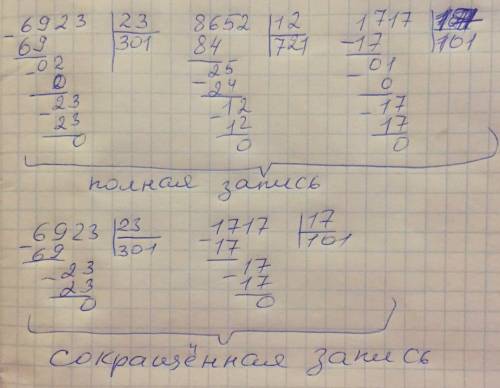 6923 | 23
- 69 | 301
- 02
0
- 23
23
0
8652 | 12
84 | 721
- 25
24
- 12
12
0
1717
- 17 | 101
- 01
0
- 17
17
0
полная запись
6923 | 23
- 69 | 301
- 23
23
0
1717 | 17
- 17 | 101
- 17
17
0
сокращённая запись